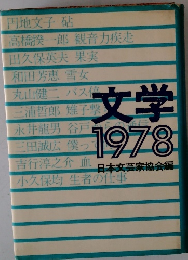 円地文子 砧
高橋揆一郎 観音力疾走
出久保英夫 果実
和田芳恵 雪女
丸山健二 バス停
三浦哲郎 雉子撃ち
永井龍男 谷戸
三田誠広 僕っ
吉行淳之介 血
小久保均 生者の仕事
文学
1978
日本文芸家協会編